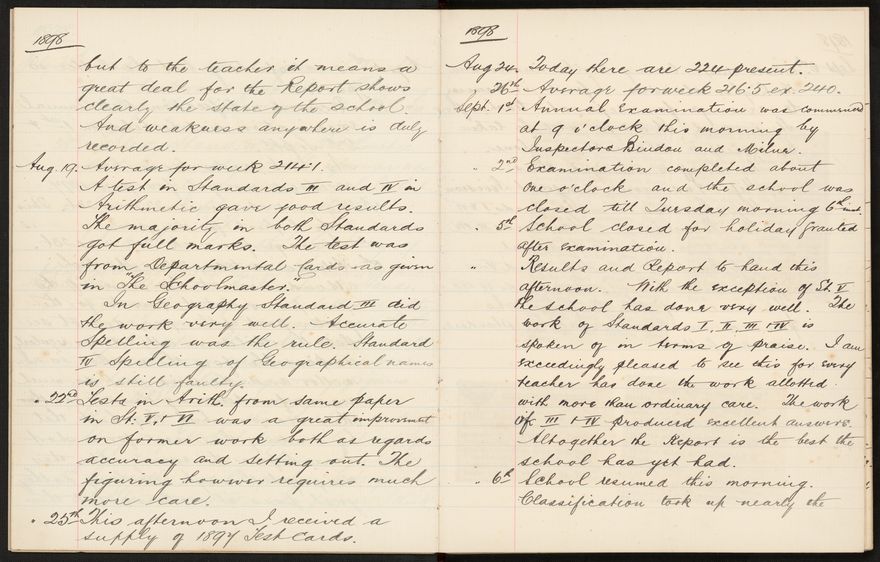 1898
but to the teacher it means a
great deal for the Report shows
clearly the state of the school
And weakness anywhere is duly
recorded.
Aug. 19. Average for week 214.1.
A test in Standards III and IV in
Arithmetic gave good results.
The majority in both Standards
got full marks. The test was
from Departmental Cards as given
in "The Schoolmaster."
In Geography Standard III did
the work very well. Accurate
Spelling was the rule. Standard
IV Spelling of Geographical names
is still faulty.
" 22nd Tests in Arith. from same paper
in St. V, & VI was a great improvement
on former work both as regards
accuracy and setting out. The
figuring however requires much
more care.
" 25th This afternoon I received a
supply of 1897 Test Cards.
1898
Aug 24. Today there are 224 present.
" 26th Average for week 216.5 ex. 240.
Sept. 1st Annual Examination was commenced
at 9 o'clock this morning by
Inspectors Bindon and Milner.
" 2nd Examination completed about
one o'clock and the school was
closed till Tuesday morning 6th inst.
" 5th School closed for holiday granted
after examination.
" Results and Report to hand this
afternoon. With the exception of St. V
the school has done very well. The
work of Standards I, II, III & IV is
spoken of in terms of praise. I am
exceedingly pleased to see this for every
teacher has done the work allotted
with more than ordinary care. The work
of III & IV produced excellent answers.
Altogether the Report is the best the
school has yet had.
" 6th School resumed this morning.
Classification took up nearly the